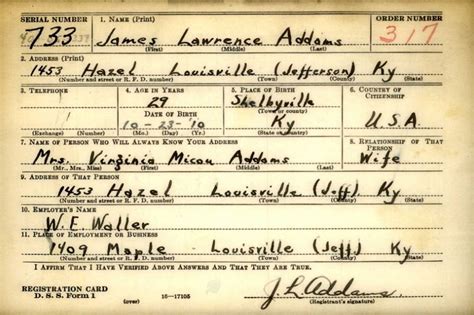 SERIAL NUMBER 1. NAME (Print) ORDER NUMBER
733 James Lawrence Addams 317
(First) (Middle) (Last)
2. ADDRESS (Print)
1453 Hazel Louisville (Jefferson) Ky
(Number) (Street or R. F. D. number) (Town) (County) (State)
3. TELEPHONE 4. AGE IN YEARS 5. PLACE OF BIRTH 6. COUNTRY OF CITIZENSHIP
29 Shelbyville
(Town or county)
DATE OF BIRTH
10-23-10 Ky U.S.A.
(Exchange) (Number) (Mo.) (Day) (Yr.) (State or country)
7. NAME OF PERSON WHO WILL ALWAYS KNOW YOUR ADDRESS 8. RELATIONSHIP OF THAT PERSON
Mrs. Virginia Micou Addams Wife
(Mr., Mrs., Miss) (First) (Middle) (Last)
9. ADDRESS OF THAT PERSON
1453 Hazel Louisville (Jeff.) Ky
(Number) (Street or R. F. D. number) (Town) (County) (State)
10. EMPLOYER'S NAME
W. E. Waller
11. PLACE OF EMPLOYMENT OR BUSINESS
1409 Maple - Louisville (Jeff.) Ky
(Number) (Street or R. F. D. number) (Town) (County) (State)
I AFFIRM THAT I HAVE VERIFIED ABOVE ANSWERS AND THAT THEY ARE TRUE.
REGISTRATION CARD
D. S. S. Form 1 (over) 16-17105 J. L. Addams
(Registrant's signature)